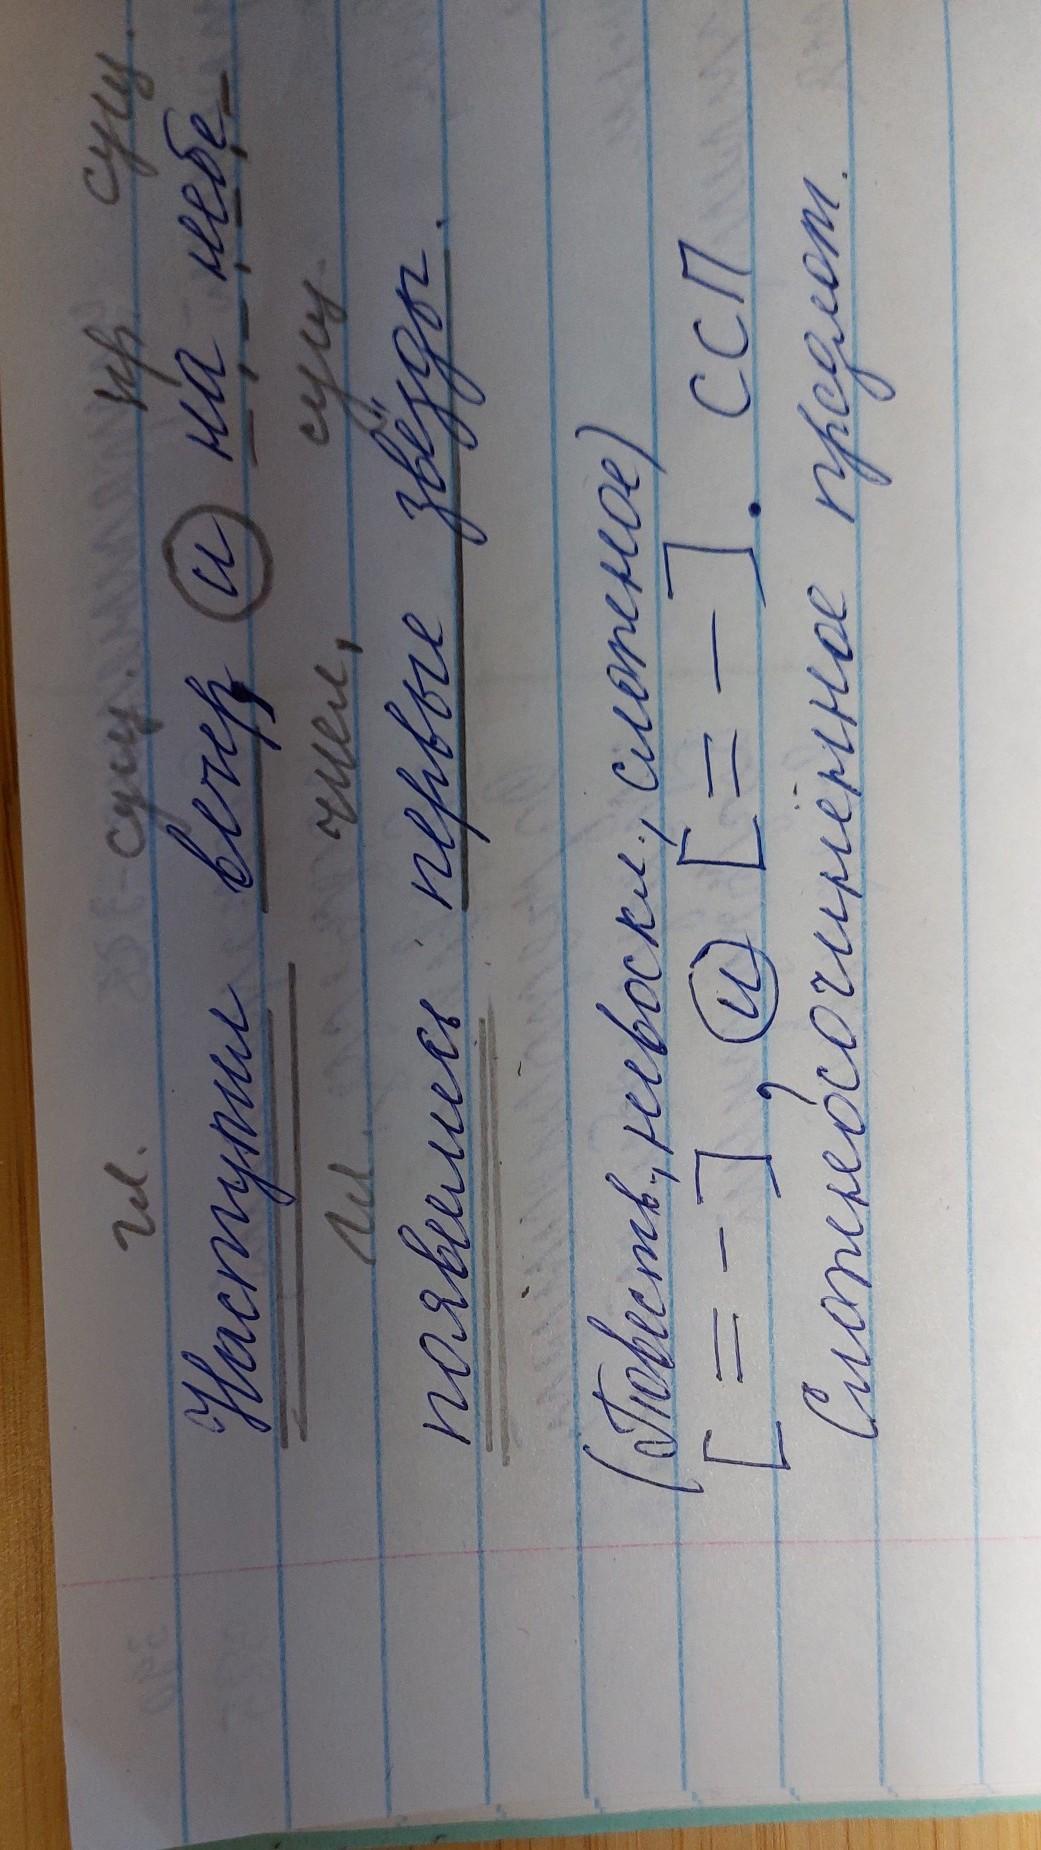 гл. сущ. пр. сущ.
Наступил вечер, и на небе
гл. числ, сущ.
появились первые звёзды.
(Повеств., невоскл., сложное)
[= -], и [= -]. ССП
Сложносочинённое предлож.